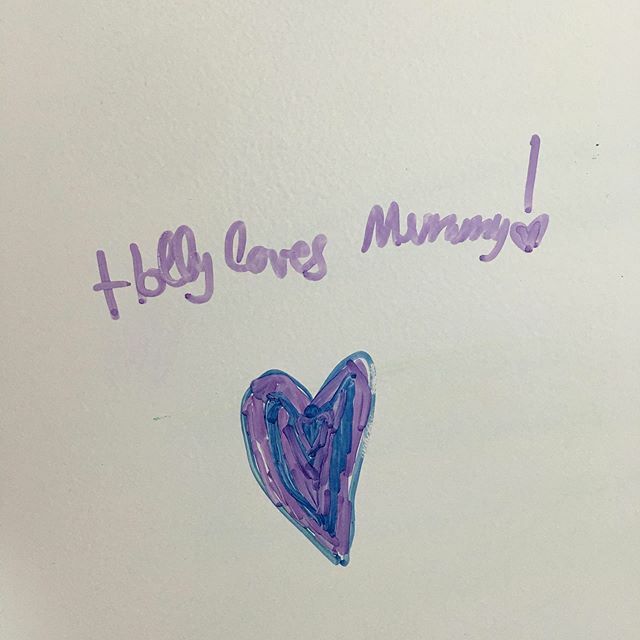 Holly loves Mummy!